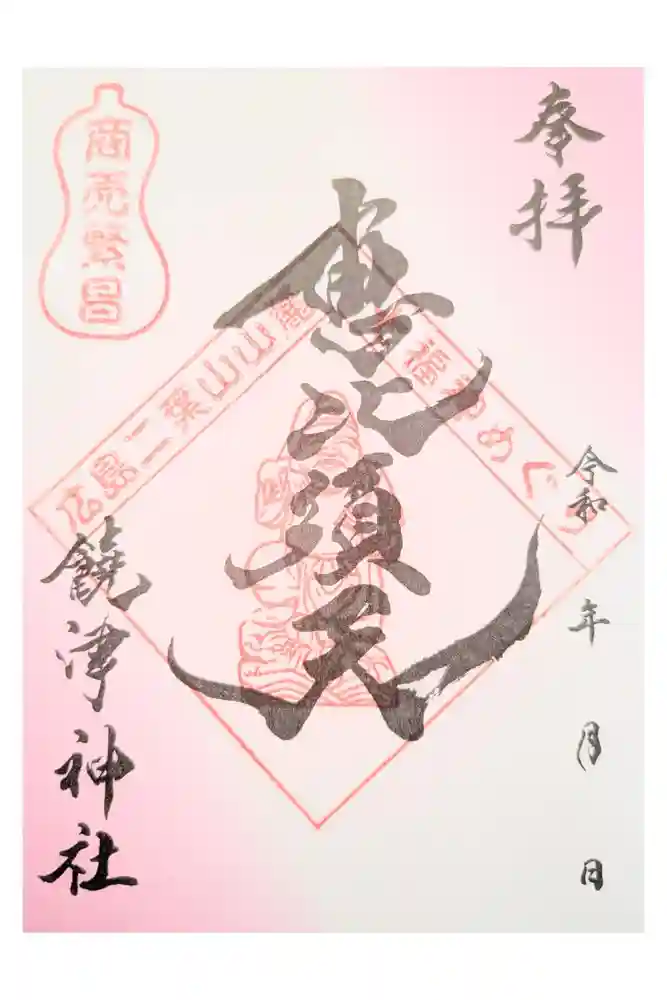 奉拝
令和 年 月 日
惠比須天
広島二葉山山麓
七福神めぐり
商売繁昌
饒津神社